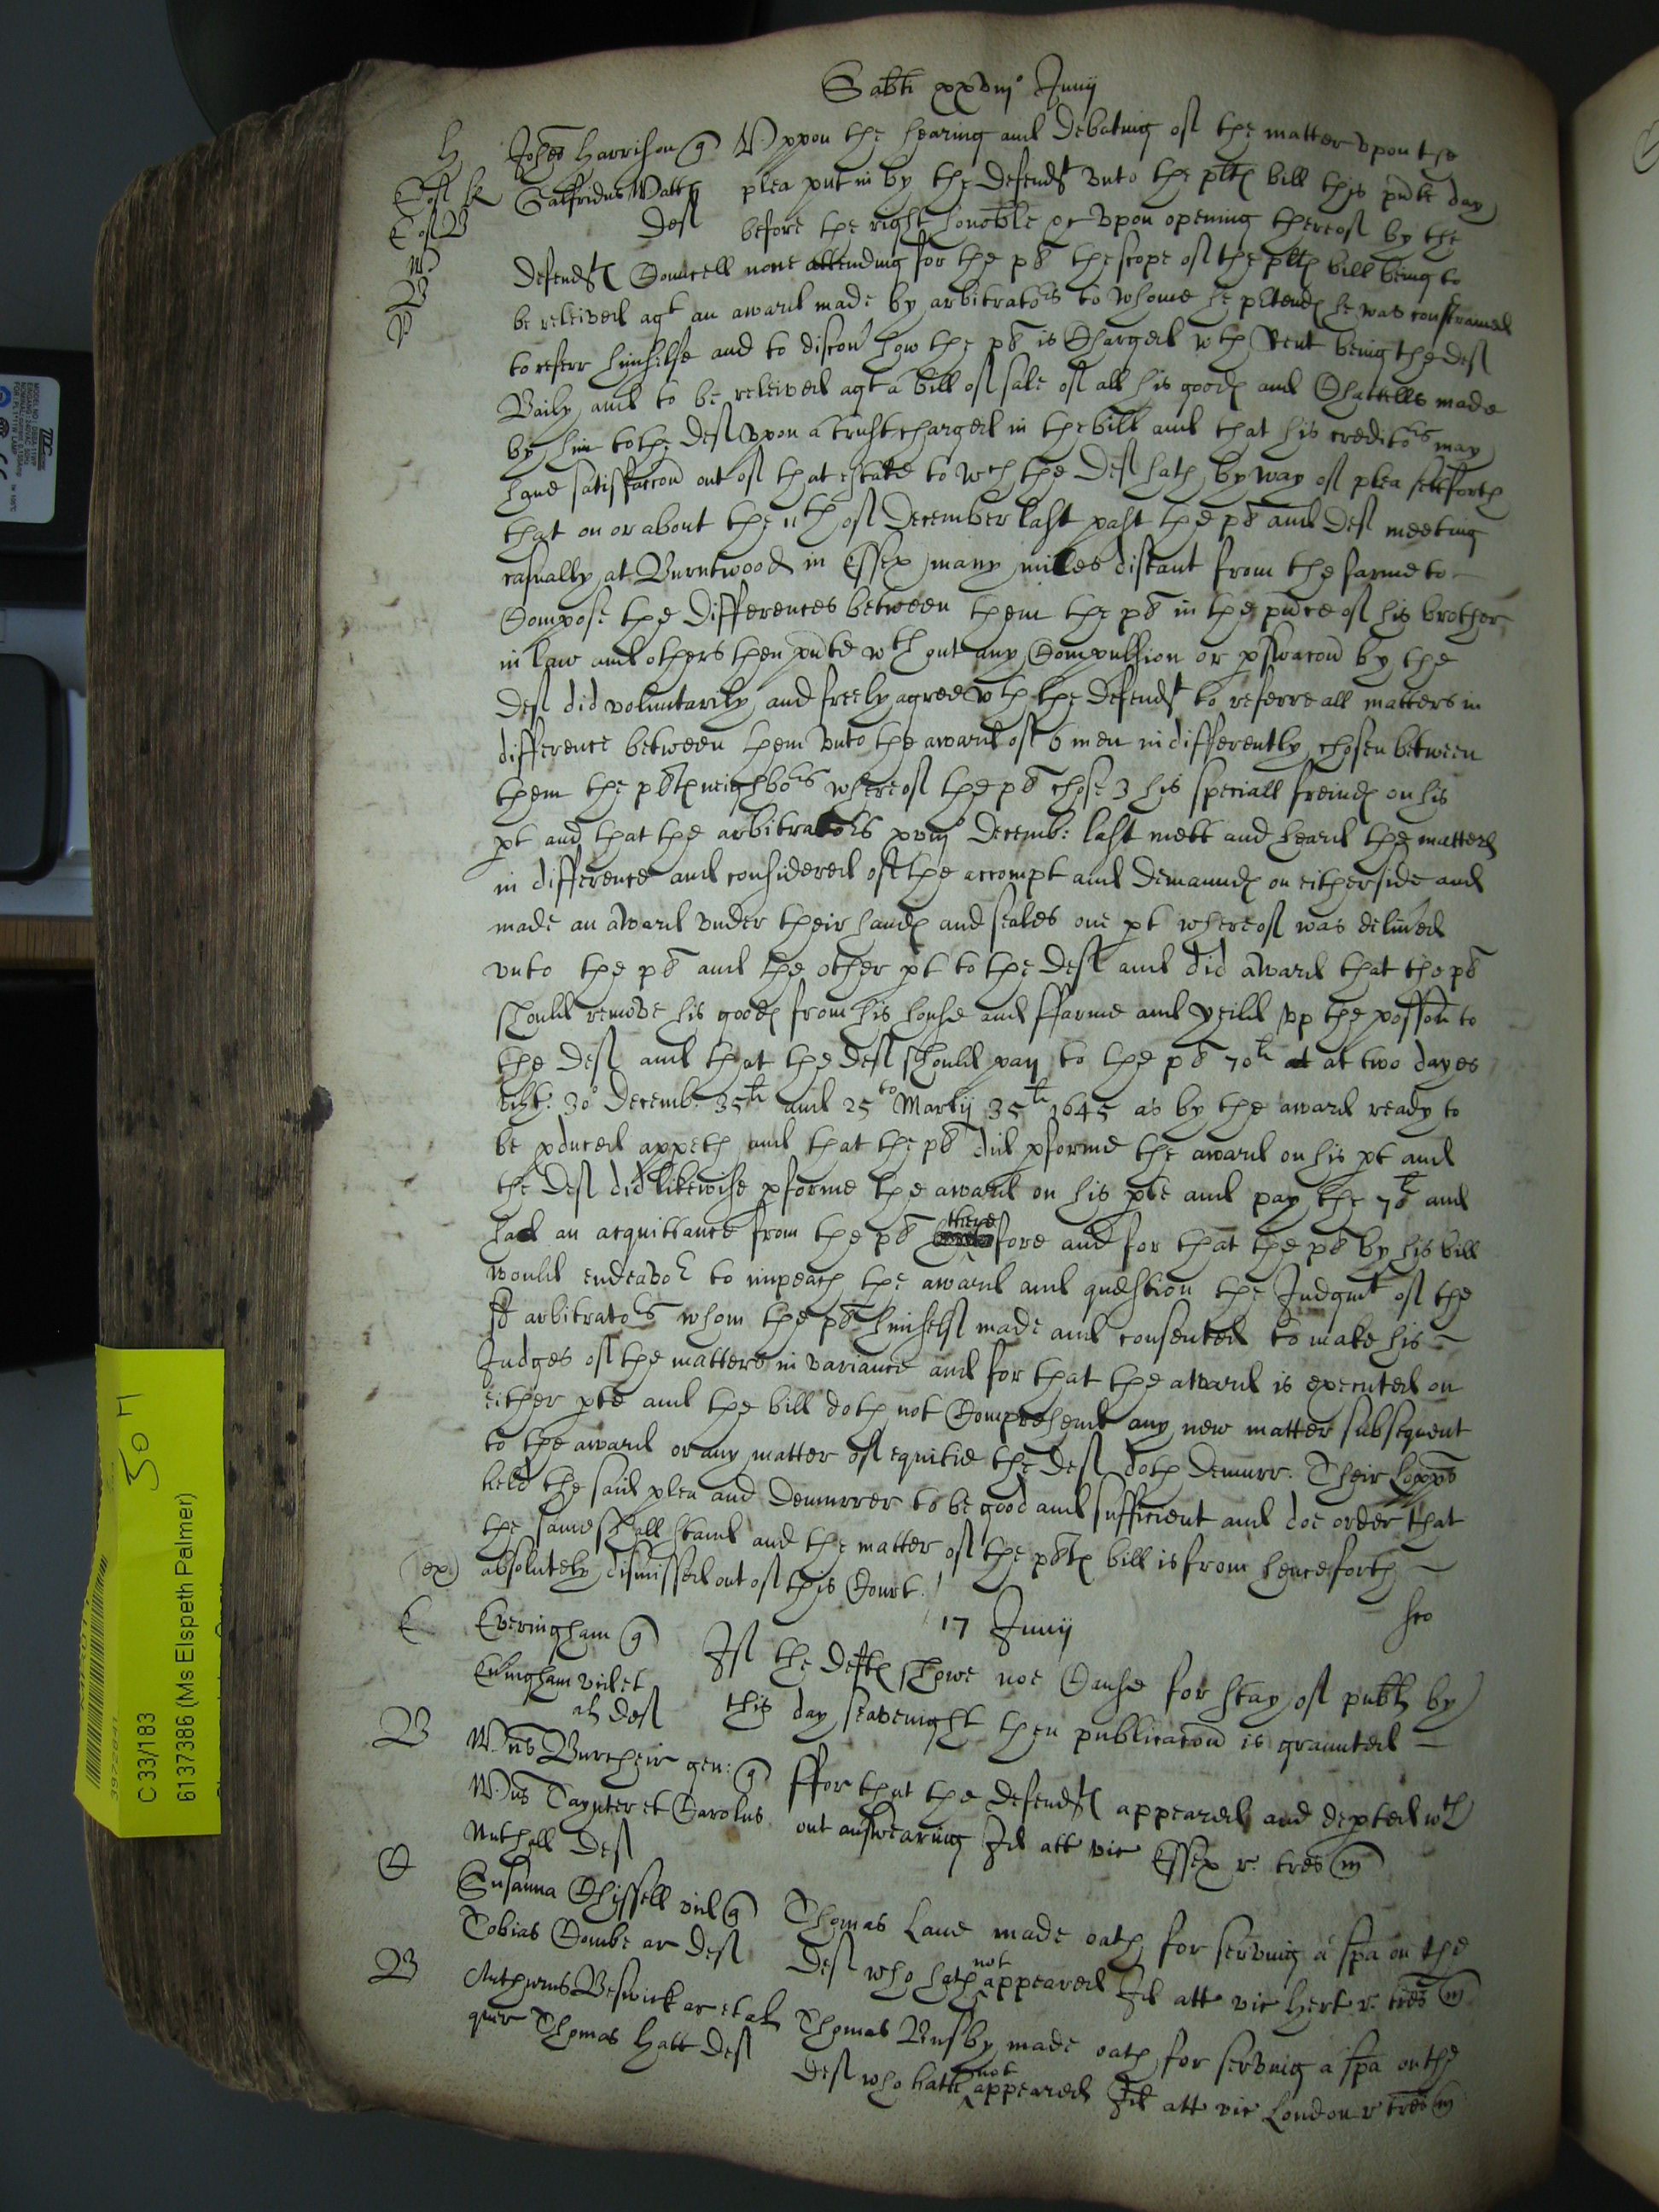 Sabti xxviij° Junij
H Johes Harrison q Vppon the hearing and debating of the matter vpon the
Galfridus Watts plea put in by the defendt vnto the plts bill this pnte day
def before the right honoble &c vpon opening thereof by the
defendts Councell none attending for the pl the scope of the plts bill being to
be releived agt an award made by arbitrators to whome he ptends he was constrained
to referr himselfe and to discovr how the pl is Charged wth Rent being the def
Baily and to be releived agt a bill of sale of all his goods and Chattells made
by him to the def vpon a trust charged in the bill and that his creditors may
haue satisfaccon out of that estate to wch the def hath by way of plea sett forth
that on or about the 11th of December last past the pl and def meeting
casually at Burntwood in Essex many miles distant from the farme to
Compose the differences between them the pl in the pnce of his brother
in law and others then pnte wthout any Compulsion or pswacon by the
def did voluntarily and freely agree wth the defendt to referre all matters in
difference between them vnto the award of 6 men indifferently chosen between
them the plts neighbors whereof the pl chose 3 his speciall freinds on his
pt and that the arbitrators xviij° Decemb: last mett and heard the matters
in difference and considered of the accompt and demaunds on either side and
made an award vnder their hands and seales one pt whereof was delivred
vnto the pl and the other pt to the def and did award that the pl
should remove his goods from his house and ffarme and yeild vp the possion to
the def and that the def should pay to the pl 70li at at two dayes
vizt: 30° Decemb: 35li and 25to Martij 35li 1645 as by the award ready to
be pduced appeth and that the pl did pforme the award on his pt and
the def did likewise pforme the award on his pte and pay the 70li and
had an acquittance from the pl there fore and for that the pl by his bill
would endeavor to impeach the award and question the Judgmt of the
sd arbitrators whom the pl himself made and consented to make his
Judges of the matters in variance and for that the award is executed on
either pte and the bill doth not Comprehend any new matter subsequent
to the award or any matter of equitie the def doth demurr. Their Lopps
held the said plea and demurrer to be good and sufficient and doe order that
the same shall stand and the matter of the plts bill is from henceforth
(ex) absolutely dismissed out of this Court.
17 Junij
E Everingham q If the defts showe noe Cause for stay of publ by
Evingham vid et al def this day seavenight then publicacon is graunted
B Wms Burcheir gen: q ffor that the defendts appeared and depted wth
Wms Taynter et Carolus out answearing Id att vic Essex r. tres m
Nuthall def
C Susanna Chissell vid q Thomas Lane made oath for serving a spa on the
Tobias Combe ar def def who hath not appeared Id att vic Hert r. tres m
B Anthonius Beswick ar et al Thomas Busby made oath for serving a spa on the
quer Thomas Hatt def def who hath not appeared Id att vic London r tres m
TTC
50 H
C 33/183
6137386 (Ms Elspeth Palmer)